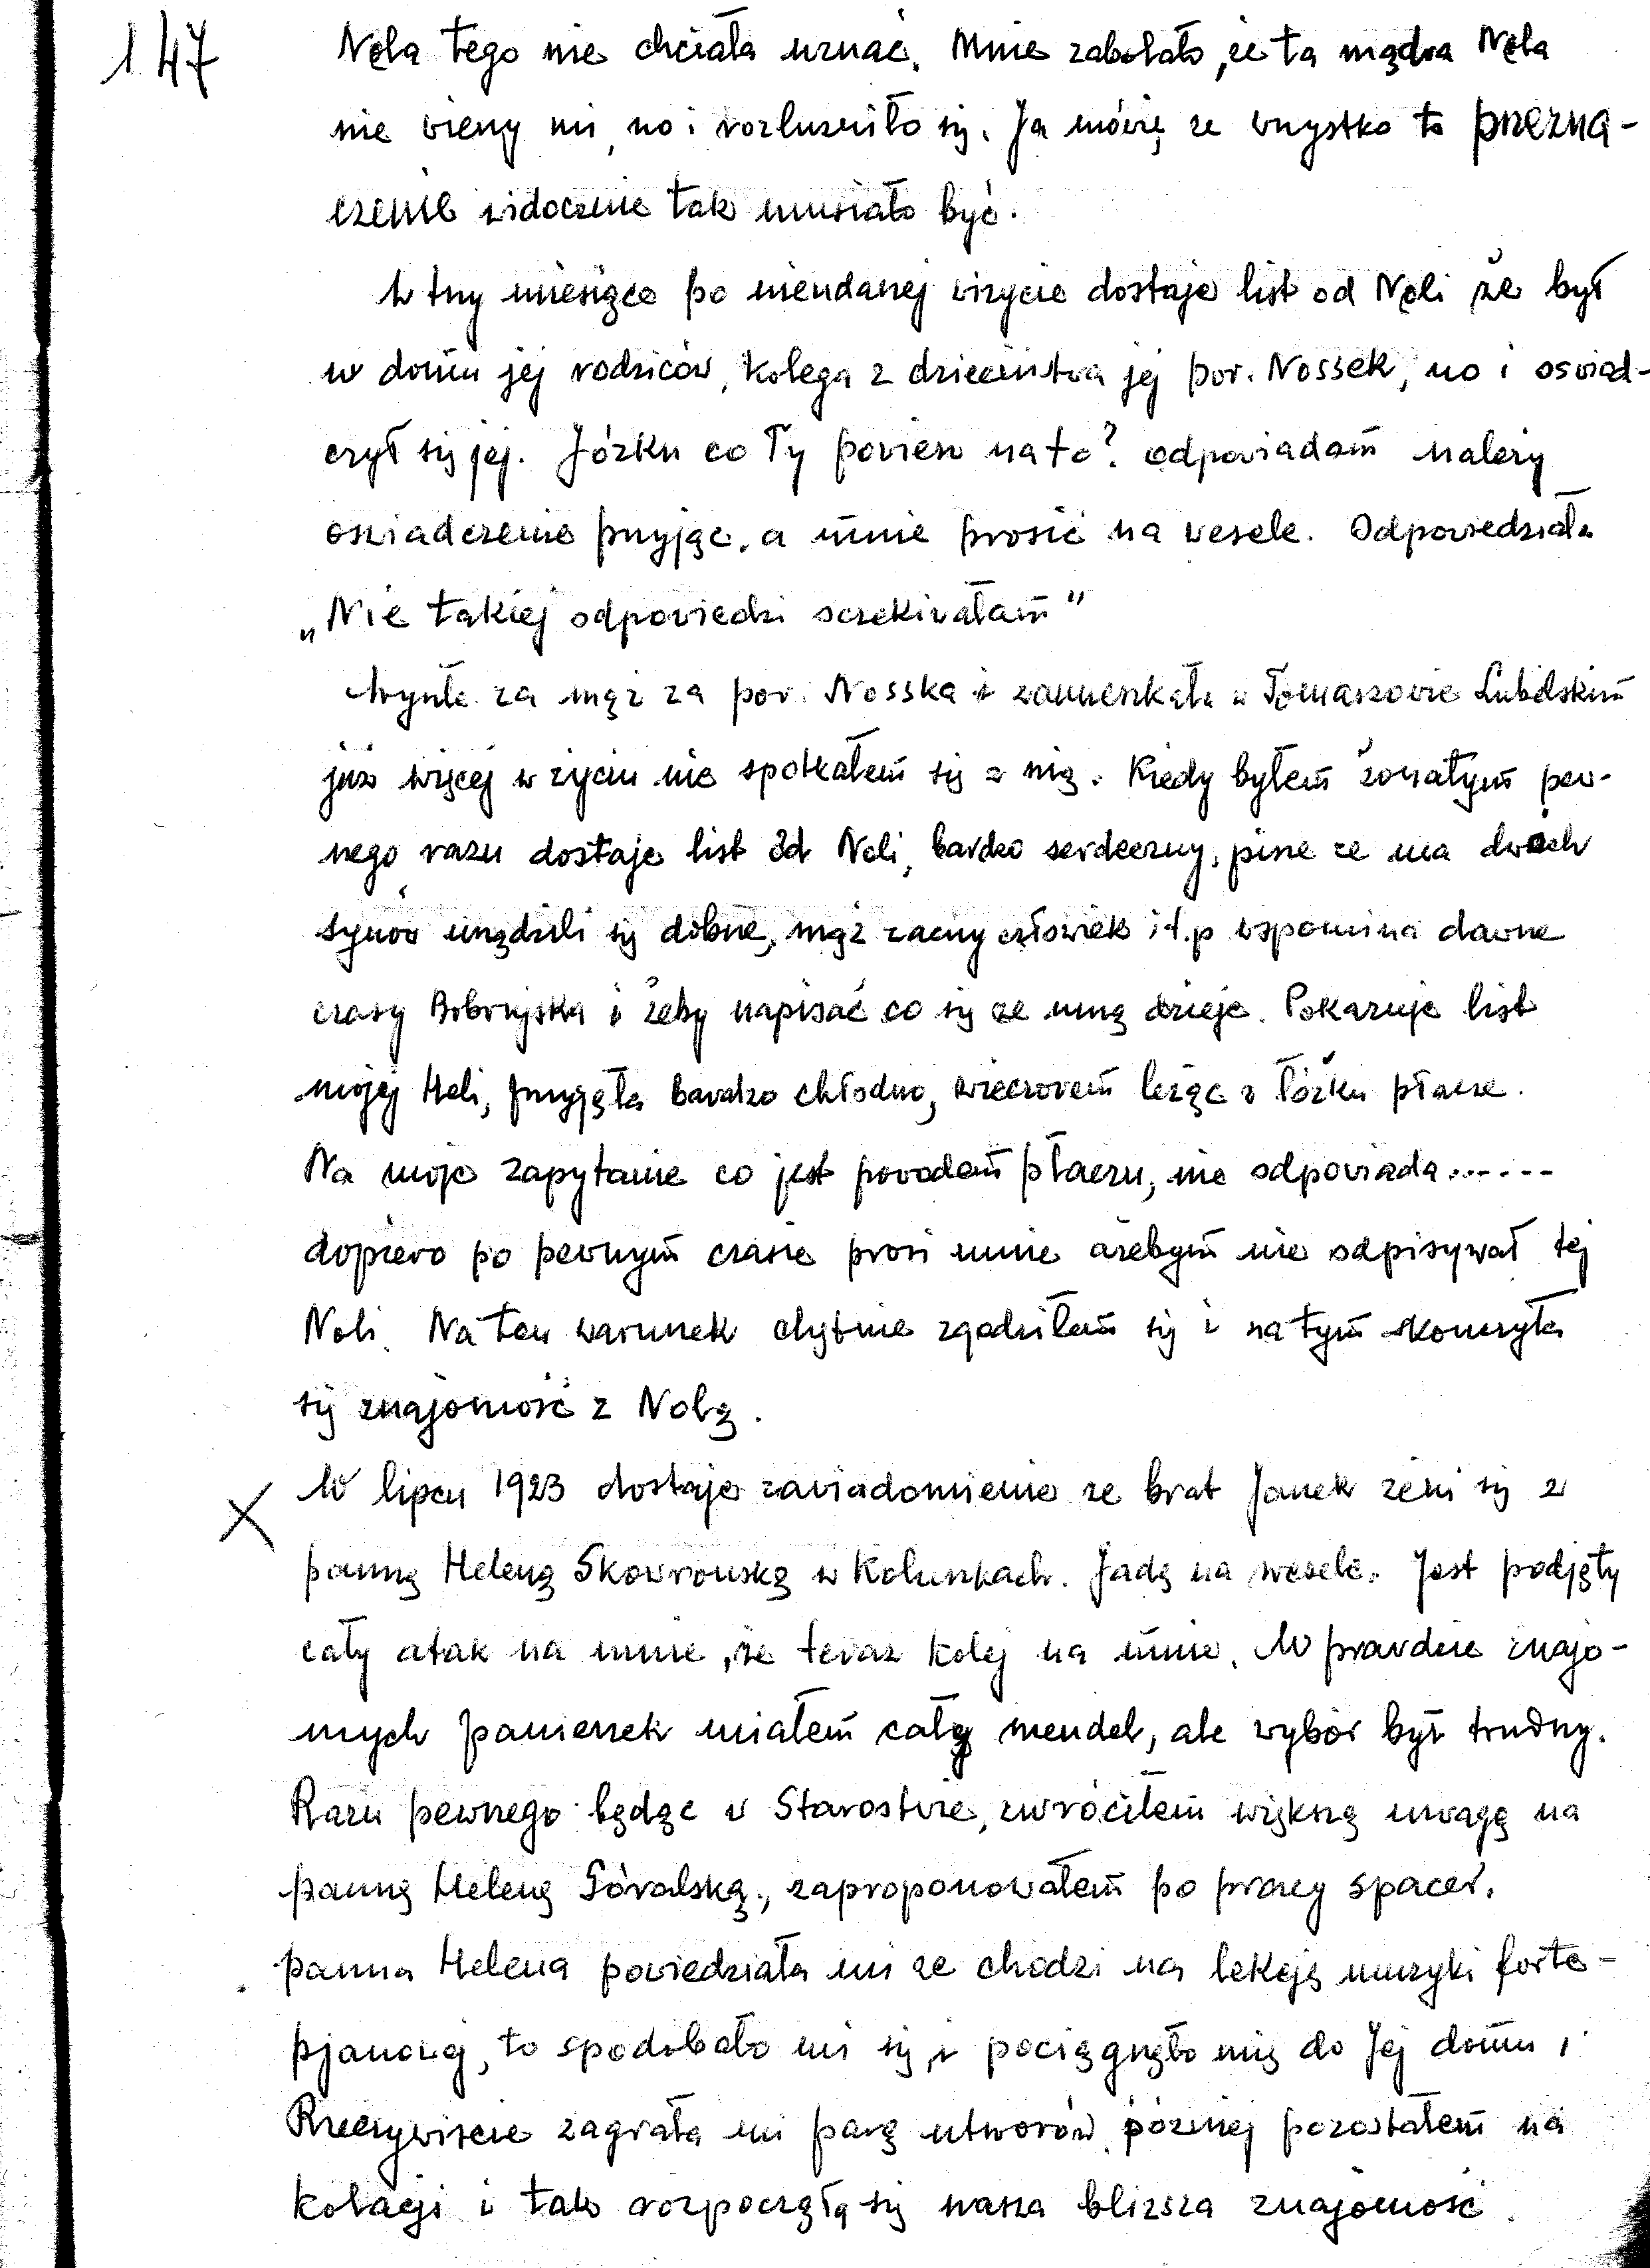 147
Nela tego nie chciała uznać. Mnie zabolało, że ta mądra Nela
nie wierzy mi, no i rozluzniło się. Ja mówię ze wszystko to przezna-
czenie widocznie tak musiało być.
W trzy miesiące po nieudanej wizycie dostaje list od Neli że był
w domu jej rodziców, kolega z dzieciństwa jej por. Nossek, no i oswiad-
czył się jej. Józku co Ty powiesz na to? odpowiadam nalezy
oswiadczenie przyjąc, a mnie prosić na wesele. Odpowiedziała
„Nie takiej odpowiedzi oczekiwałam"
Wyszła za mąż za por. Nosska i zamieszkała w Tomaszowie Lubelskim
już więcej w zyciu nie spotkałem się z nią. Kiedy byłem żonatym pew-
nego razu dostaje list od Neli, bardzo serdeczny, pisze ze ma dwoch
synów urządzili się dobrze, mąż zacny człowiek i t.p wspomina dawne
czasy Bobrujska i żeby napisać co się ze mną dzieje. Pokazuje list
mojej Heli, przyjęła bardzo chłodno, wieczorem leżąc w łóżku płacze.
Na moje zapytanie co jest powodem płaczu, nie odpowiada......
dopiero po pewnym czasie prosi mnie ażebym nie odpisywał tej
Neli. Na ten warunek chętnie zgodziłem się i na tym skonczyła
się znajomość z Nelą.
W lipcu 1923 dostaje zawiadomienie ze brat Janek zeni się z
panną Heleną Skowronską w Koluszkach. Jadę na wesele. Jest podjęty
cały atak na mnie, że teraz kolej na mnie. W prawdzie znajo-
mych panienek miałem cały mendel, ale wybór był trudny.
Razu pewnego będąc w Starostwie, zwróciłem większą uwagę na
panną Heleną Góralską, zaproponowałem po pracy spacer.
panna Helena powiedziała mi ze chodzi na lekcję muzyki forte-
pjanowej, to spodobało mi się i pociągnęło mię do Jej domu,
Rzeczywiscie zagrała mi parę utworów, pózniej pozostałem na
kolacji i tak rozpoczęła się nasza blizsza znajomość.